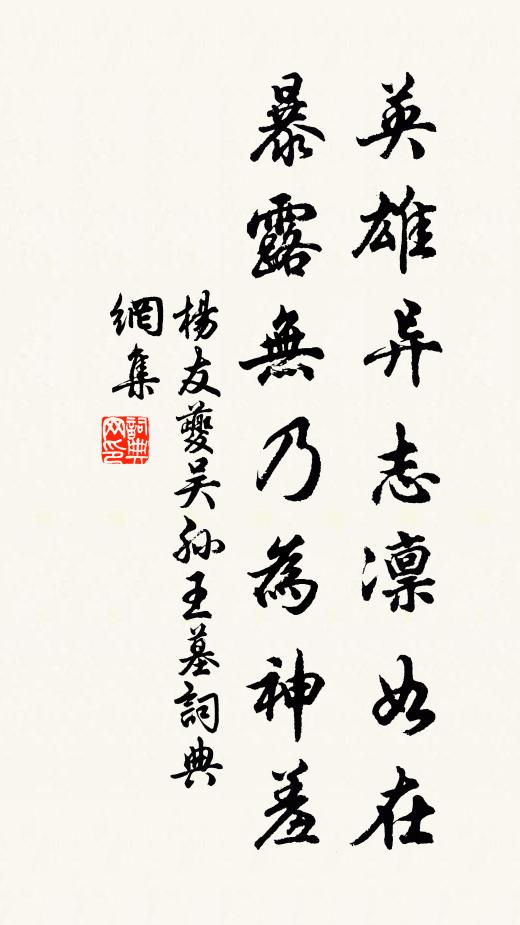 英雄异志凛如在
暴露無乃為神羞
楊友夔吴孙王墓詞典
網集
詞典網印